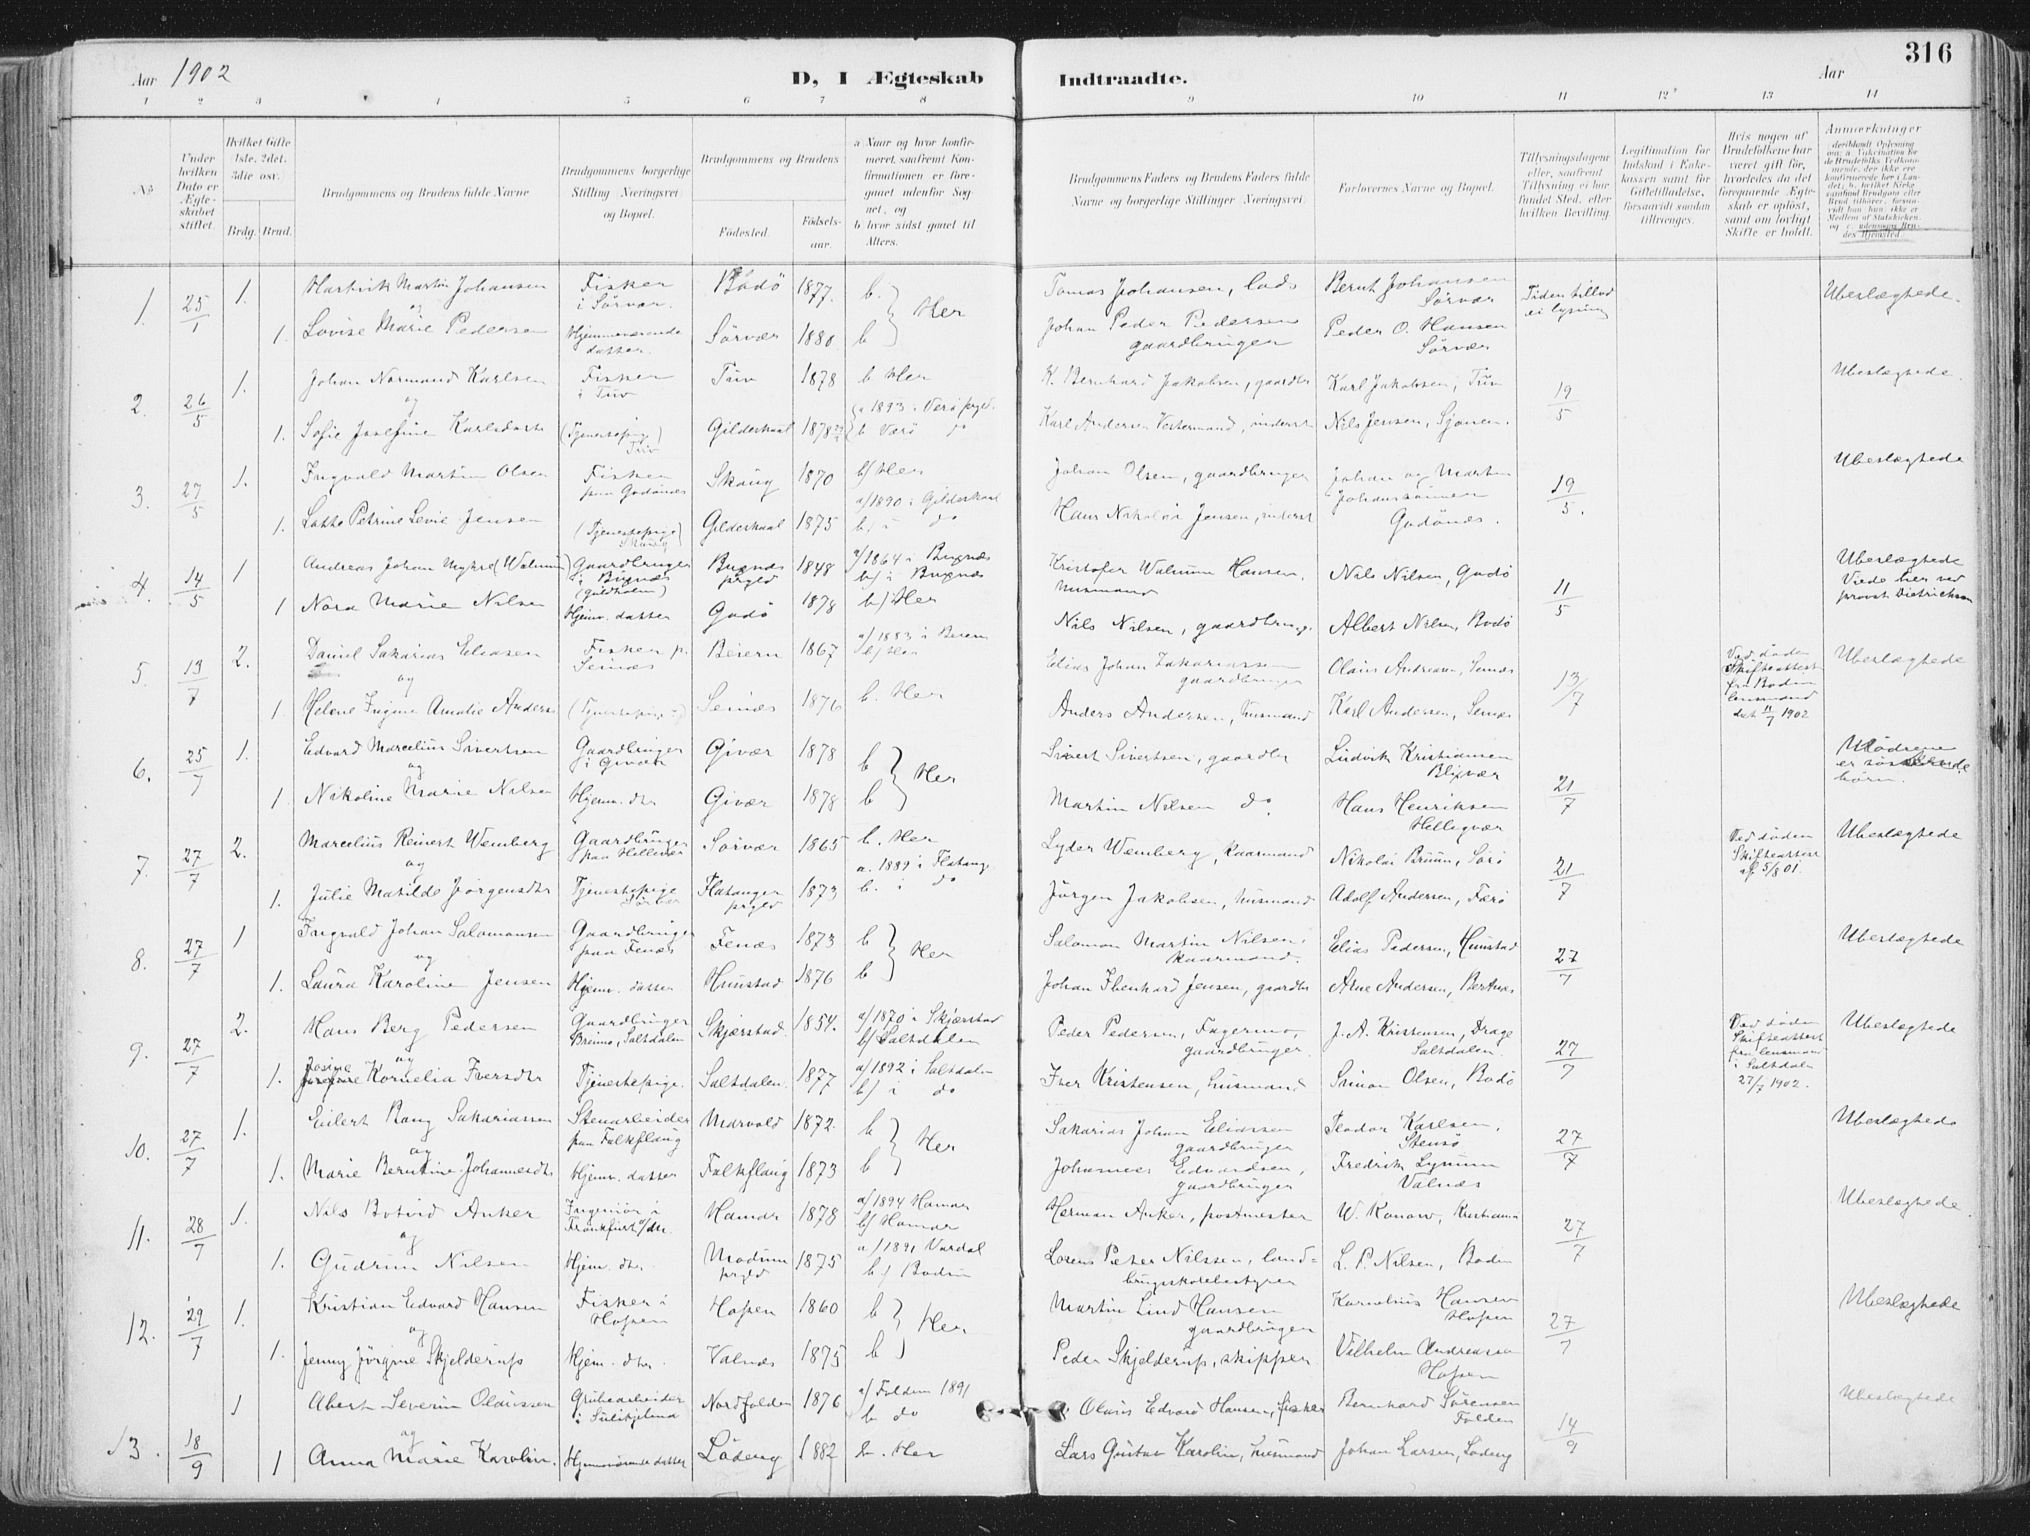 316
Aar 1902
D, I Ægteskab Indtraadte.
Aar
1 2 3 4 5 6 7 8 9 10 11 12 13 14
No.
Under hvilken Dato er Ægteskabet stiftet
Hvilket Gifte 1ste, 2det, 3die osv.
Brdg. Brud.
Brudgommens og Brudens fulde Navne
Brudgommens borgerlige Stilling Næringsvei og Bopæl.
Brudgommens og Brudens
Fødested.
Fødselsaar.
a Naar og hvor konfirmeret, saafremt Konfirmationen er foregaaet udenfor Sognet, og
b hvor sidst gaaet til Alters.
Brudgommens Faders og Brudens Faders fulde Navne og borgerlige Stillinger Næringsvei.
Forlovernes Navne og Bopæl.
Tillysningsdagene eller, saafremt Tillysning ei har fundet Sted, efter hvilken Bevilling.
Legitimation for Indskud i Enkekassen samt for Giftetilladelse, forsaavidt saadan tiltrænges.
Hvis nogen af Brudefolkene har været gift før, hvorledes da det foregaaende Ægteskab er opløst, samt om lovligt Skifte er holdt.
Anmærkninger
1. 25/1 1. Hartvik Martin Johansen Fisker i Sörvær. Bodö 1877. b. Her Tomas Johansen, lods Bernt Johansen Sörvær Tiden tillod ei lysning Ubeslægtede.
og
1. Lovise Marie Pedersen Hjemmeværende datter. Sörvær 1880 b Johan Peder Pedersen gaardbruger Peder O. Hansen Sörvær
2. 26/5 1. Johan Normand Karlsen Fisker i Tuv Tuv 1878 b. Her K. Bernhard Jakobsen, gaardbr Karl Jakobsen, Tuv 19/5 Ubeslægtede.
og
1. Sofie Josefine Karlsdatter (Tjenestepige Tuv) Gilderkaal 1878 a 1893 i Verö prgd. b Værö do Karl Andersen Vestermand, inderst Nils Jensen, Sjonen.
3. 27/5 1. Ingvald Martin Olsen Fisker paa Godönes Skaug 1870 b/ Her Johan Olsen, gaardbruger Johan og Martin Johanssönner Godönes. 19/5. Ubeslægtede
1. Lotte Petrine Levie Jensen (Tjenestepige Skaug) Gilderkaal 1875 a/ 1890 i Gilderkaal b/ i do Hans Nikolai Jensen, inderst
4. 14/5 1 Andreas Johan Myhre (Walnum) Gaardbruger i Buxnes (Guldholm) Buxnes prgld 1848 a/ 1864 i Buxnes b/ i Buxnes Kristofer Walnum Hansen, husmand Nils Nilsen, Godö 11/5 Ubeslægtede Viede her ved provst Dietrichson
1 Nora Marie Nilsen Hjemv. datter Godö 1878 b/ Her Nils Nilsen, gaardbrug. Albert Nilsen, Bodö
5. 13/7 2. Daniel Sakarias Eliasen Fisker p. Seinæs Beiern 1867 a/ 1883 i Beiern b/ Her Elias Johan Zakariassen gaardbruger Olaus Andreasen, Seines 13/7 Ved döden Skifteattest fra Bodin lensmand dat 11/7 1902 Ubeslægtede
og
1. Helene Ingine Amalie Anders (Tjenestepige) Seinæs 1876 b. Her Anders Andersen, husmand Karl Andersen, Seines
6. 25/7 1. Edvard Marcelius Sivertsen Gaardbruger i Givær Givær 1878 b Her Sivert Sivertsen, gaardbr Ludvik Kristiansen Blixvær 21/7 Mödrene er sös börn.
og
1. Nikoline Marie Nilsen Hjemv. dtr Givær 1878 b Martin Nilsen do Hans Henriksen Helligvær
7. 27/7 2. Marcelius Reinert Wemberg Gaardbruger paa Hellivær Sörvær 1865 b. Her Lyder Wemberg, kaarmand Nikolai Bruun, Sörö 21/7 Ved döden Skifteattest af 5/8 01. Ubeslægtede
og
1. Julie Matilde Jörgensdtr Tjenestepige Flatanger prgld 1873 a. 1889 i Flatang. b. i do Jörgen Jakobsen, husmand Adolf Andersen, Færö
8. 27/7 1 Ingvald Johan Salomonsen Gaardbruger paa Fenæs Fenæs 1873 b Her Salomon Martin Nilsen, kaarmand. Elias Pedersen, Hunstad 27/7 Ubeslægtede
og
1. Laura Karoline Jensen Hjemv. datter Hunstad 1876 b Johan Ibenhard Jensen, gaardbr Arne Andersen, Bertnes
9. 27/7 2. Hans Berg Pedersen Gaardbruger Brenno, Saltdalen Skjærstad 1854. a/ 1870 i Skjærstad b/ Saltdalen Peder Pedersen, Fagermo, gaardbruger. J. A. Kristensen, Drage Saltdalen. 27/7 Ved döden Skifteattest fra lensmand i Saltdalen 27/7 1902. Ubeslægtede
og
1. Josine Kornelia Iversdtr Tjenestepige. Saltdalen. 1877 a/ 1892 i Saltdalen b/ i do Iver Kristensen, husmand Simon Olsen, Bodö
10. 27/7 1. Eilert Bang Sakariassen Stenarbeider paa Falkflaug Marvold 1872. b Her Sakarias Johan Eliassen gaardbruger Teodor Karlsen, Stensö 27/7 Ubeslægtede
og
1. Marie Berntine Johannesdtr Hjemv. datter Falkflaug 1873 b Johannes Edvardsen, gaardbruger Fredrik Lynum Valnæs
11. 28/7 1. Nils Botvid Anker Ingeniör i Frankfurt a/M. Hamar 1878 a/ 1894 Hamar b/ Hamar Herman Anker, postmester W. Konow, Kristiania 27/7 Ubeslægtede.
og
1. Gudrun Nilsen Hjem. dtr. Modum prgld 1875 a/ 1891 Vardal b/ Bodin Lorens Peter Nilssen, landbrugsskolebestyrer L. P. Nilsen, Bodin
12. 29/7 1. Kristian Edvard Hansen Fisker i Hopen Hopen 1860 b Her Martin Lind Hansen gaardbruger Kornelius Hansen Hopen 27/7 Ubeslægtede
og
1. Jenny Jörgine Skjelderup Hjem. dtr. Valnæs 1875 b Peder Skjelderup, skipper. Vilhelm Andreassen Hopen
13. 18/9 1 Albert Severin Olaussen Grubearbeider i Sulitjelma Nordfolden 1876 a/ Folden 1891 b do Olaus Edvard Hansen, fisker Bernhard Sörensen Folden 14/9 Ubeslægtede
og
1 Anna Marie Karolin. Hjemmeværende datter Lödeng 1882 b. Her Lars Gustav Karolin, husmand Johan Larsen, Lödeng